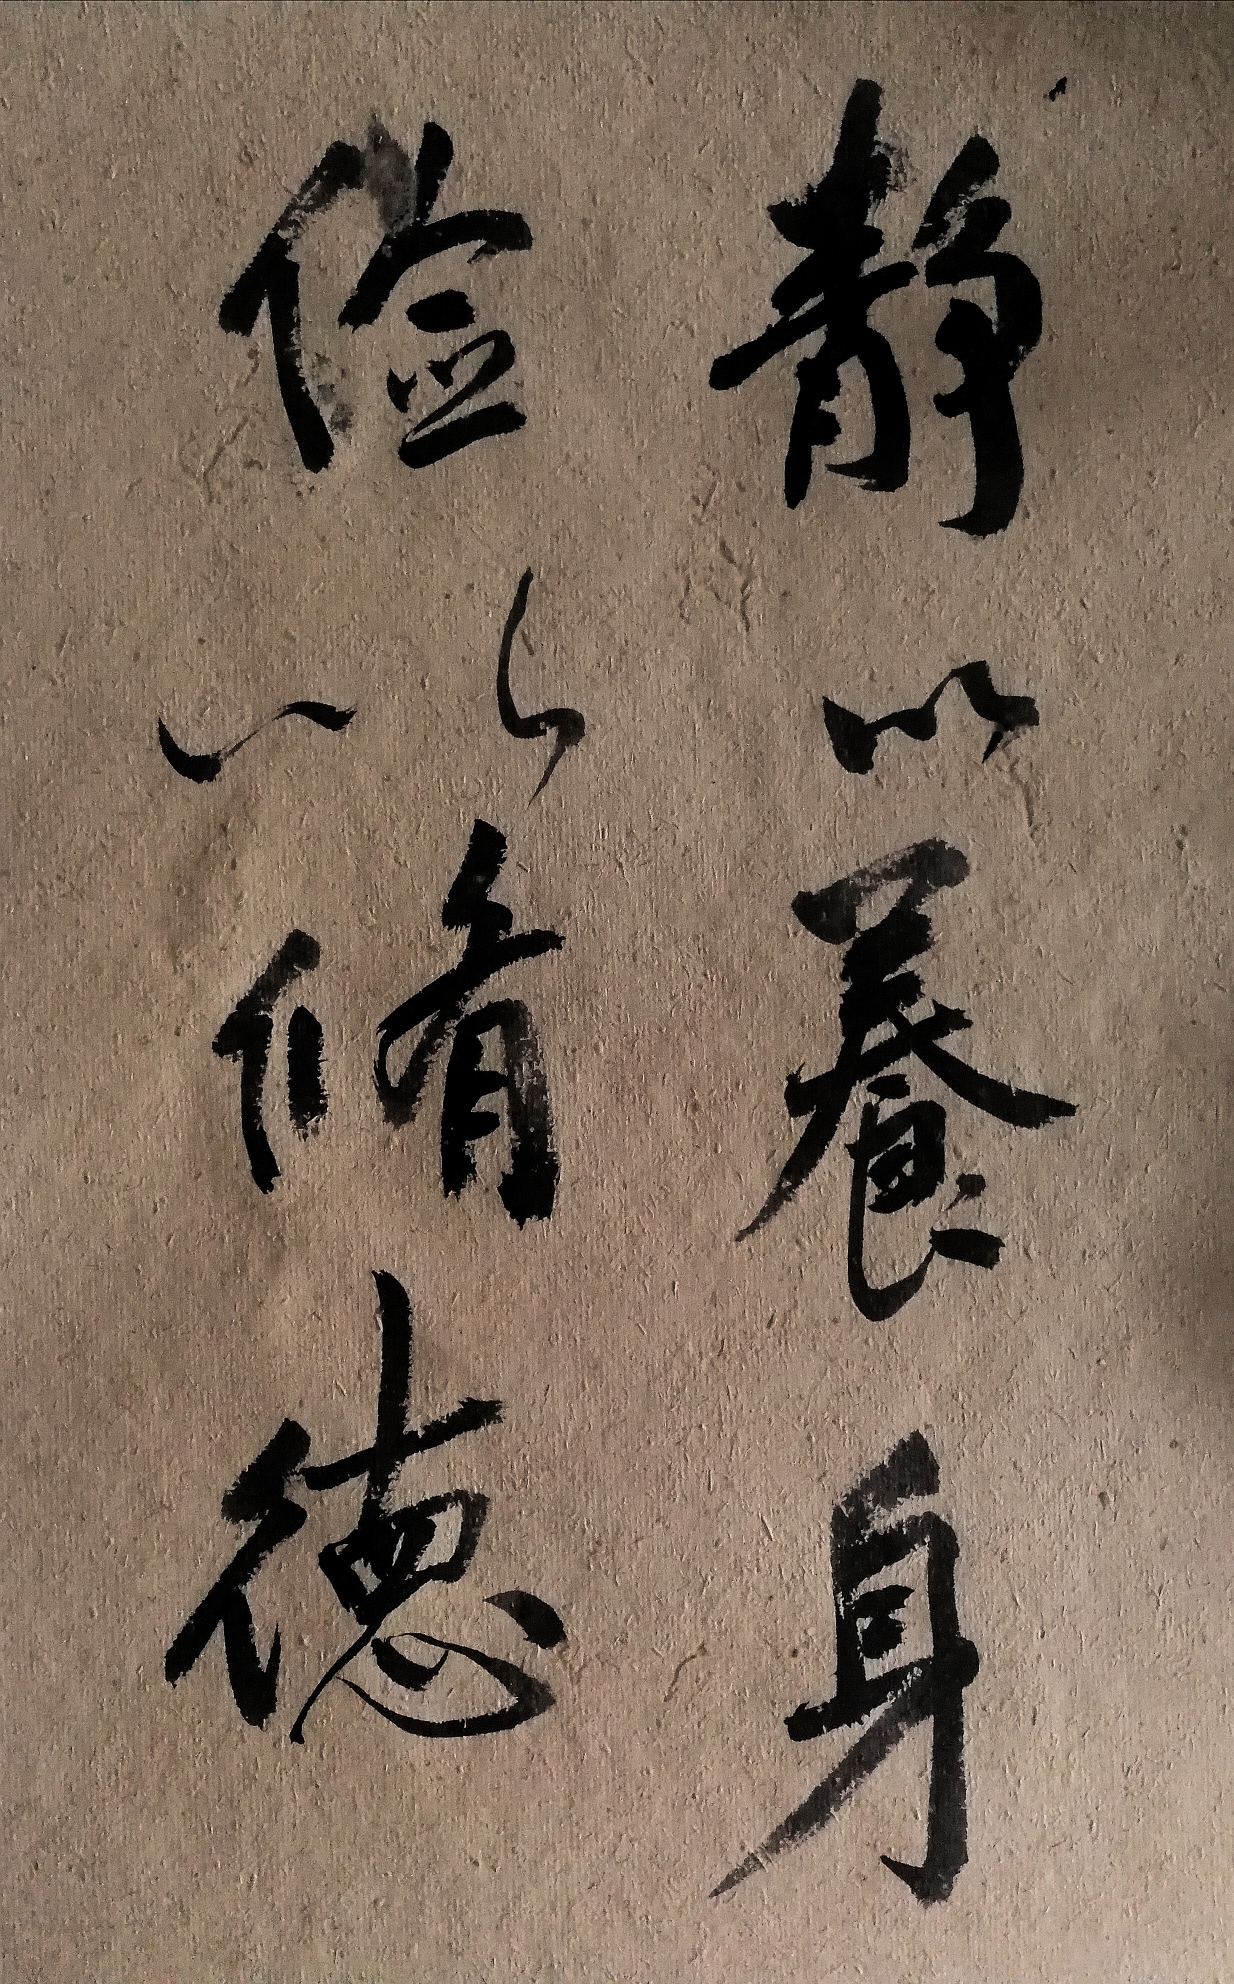 静以養身
俭以脩德